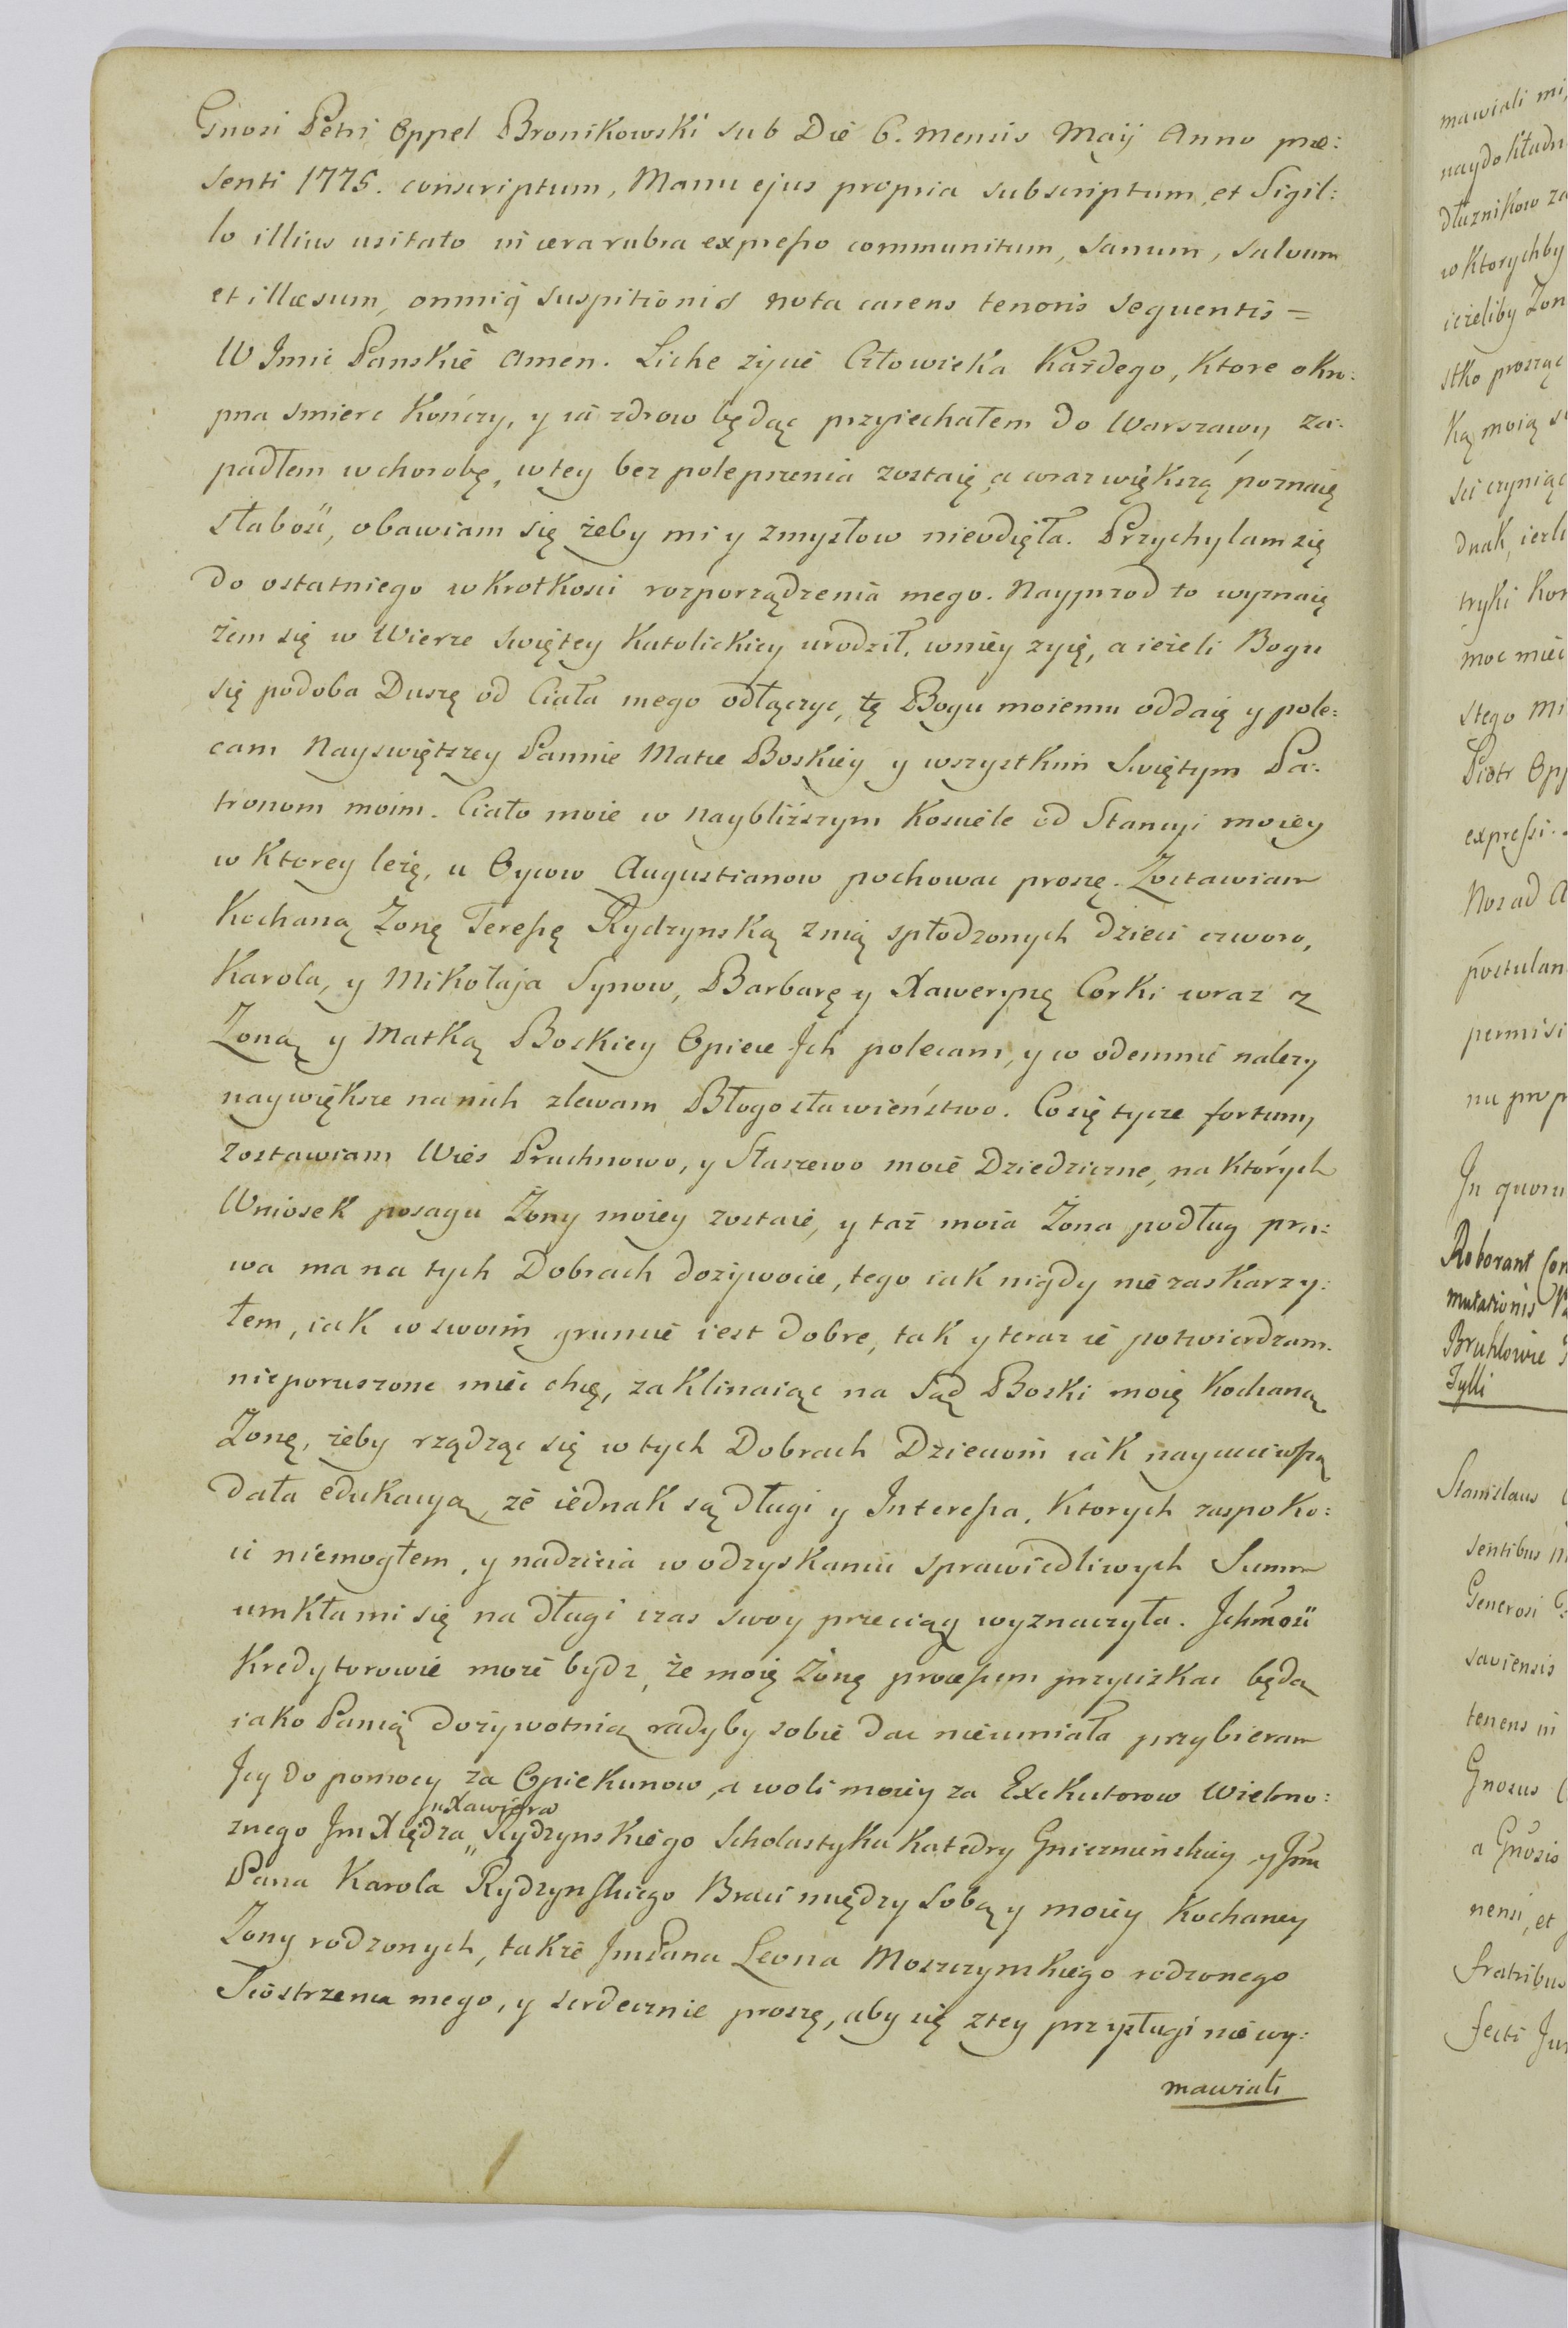 Gnosi Petri Oppel Bronikowski sub Die 6. mensis Maij Anno præ:
senti 1775. conscriptum, Manu ejus propria subscriptum, et Sigil:
lo illius usitato in cera rubra expresso communitum, sanum, salvum
et illæsum, omniq̃ suspitionis nota carens tenoris sequentis =
W Jmie Panskie Amen. Liche życie Człowieka Każdego, Ktore okro:
pna smierc Kończy, y ia zdrow będąc przyiechałem do Warszawy za:
padłem w chorobę, w tey bez polepszenia zostaię, a coraz większą poznaię
słabość, obawiam się żeby mi y zmysłow nieodięła. Przychylam się
do ostatniego w krotkosci rozporządzenia mego. Nayprzod to wyznaię
żem się w Wierze Swiętey Katolickiey urodził, w niey zyię, a ieżeli Bogu
się podoba Duszę od Ciała mego odłączyc, tę Bogu moiemu oddaię y pole:
cam Nayswiętszey Pannie Matce Boskiey y wszystkim Swiętym Pa:
tronom moim. Ciało moie w naybliższym Kosciele od Stancyi moiey
w Ktorey leżę, u Oycow Augustianow pochowac proszę. Zostawiam
Kochaną Żonę Teressę Rydzynską z nią spłodzonych dzieci czworo,
Karola, y Mikołaja Synow, Barbarę y Xawerynę Corki wraz z
Zoną y Matką Boskiey Opiece Jch polecam, y co odemnie nalezy
naywiększe na nich zlewam Błogosławieństwo. Co się tycze fortuny
zostawiam Wieś Pruchnowo, y Staszewo moie Dziedziczne, na Których
Wniosek posagu Żony moiey zostaie, y taż moia Żona podług pra:
wa ma na tych Dobrach dożywocie, tego iak nigdy nie zaskarzy:
łem, iak w swoim gruncie iest dobre, tak y teraz ie potwierdzam
nieporuszone miec chcę, zaklinaiąc na Sąd Boski moię Kochaną
Żonę, żeby rządząc się w tych Dobrach Dzieciom iak nayucciwszą
dała edukacyą, że iednak są długi y Interessa, Ktorych zaspoko:
ic niemogłem, y nadzieia w odzyskaniu sprawiedliwych Summ
umkła mi się na długi czas swoy przeciąg wyznaczyła. Jchmość
Kredytorowie może bydz, że moię Żonę processem przyciskac będą
iako Panią dożywotnią rady by sobie dac nieumiała przybieram
Jey do pomocy za Opiekunow, a woli moiey za Exekutorow Wielmo:
znego Jm Xiędza „Xawiera„ Rydzynskiego Scholastyka Katedry Gniezninskiey y Jm̃
Pana Karola Rydzynskiego Braci między sobą y moiey Kochaney
Żony rodzonych, także JmPana Leona Moszczynskiego rodzonego
Siostrzenca mego, y serdecznie proszę, aby się z tey przysługi nie wy:
mawiali
mawiali mi
naydokładn
dłuznikow za
w Ktorychby
ieżeliby Żon
stko prosząc
Ką moią
sci czyniąc
dnak, ieżli
tryki Kon
moc miec
stego
Piotr Opp
expressi.
Nos ad A
postulan
permisi
nu prop
In quoru
Roborant Con
mutationis
Bruhlowie
Tylli
Stanislaus
sentibus
Generosi
saviensis
tenens in
Gnosus
a Gnosis
nensi, et
fratribus
fecti Jur